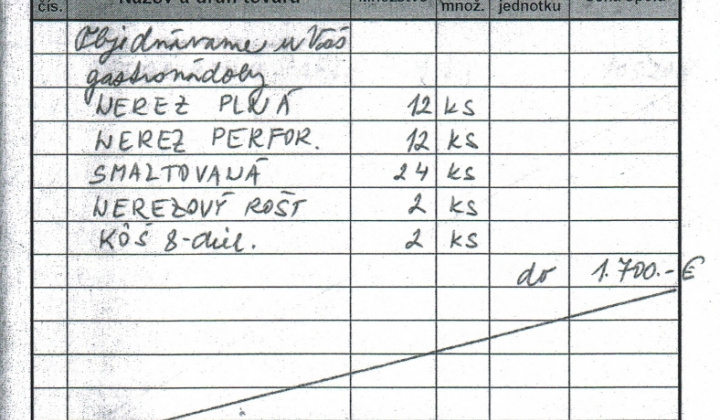 čís. Názov a druh tovaru Množstvo množ. jednotku Cena spolu
Objednávame u Vás
gastronádoby
NEREZ PLNÁ 12 ks
NEREZ PERFOR. 12 ks
SMALTOVANÁ 24 ks
NEREZOVÝ ROŠT 2 ks
KÔŠ 8-diel. 2 ks
do 1.700.- €